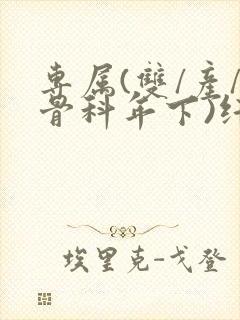 專属(雙/產/
骨科年下)纟
埃里克-戈登